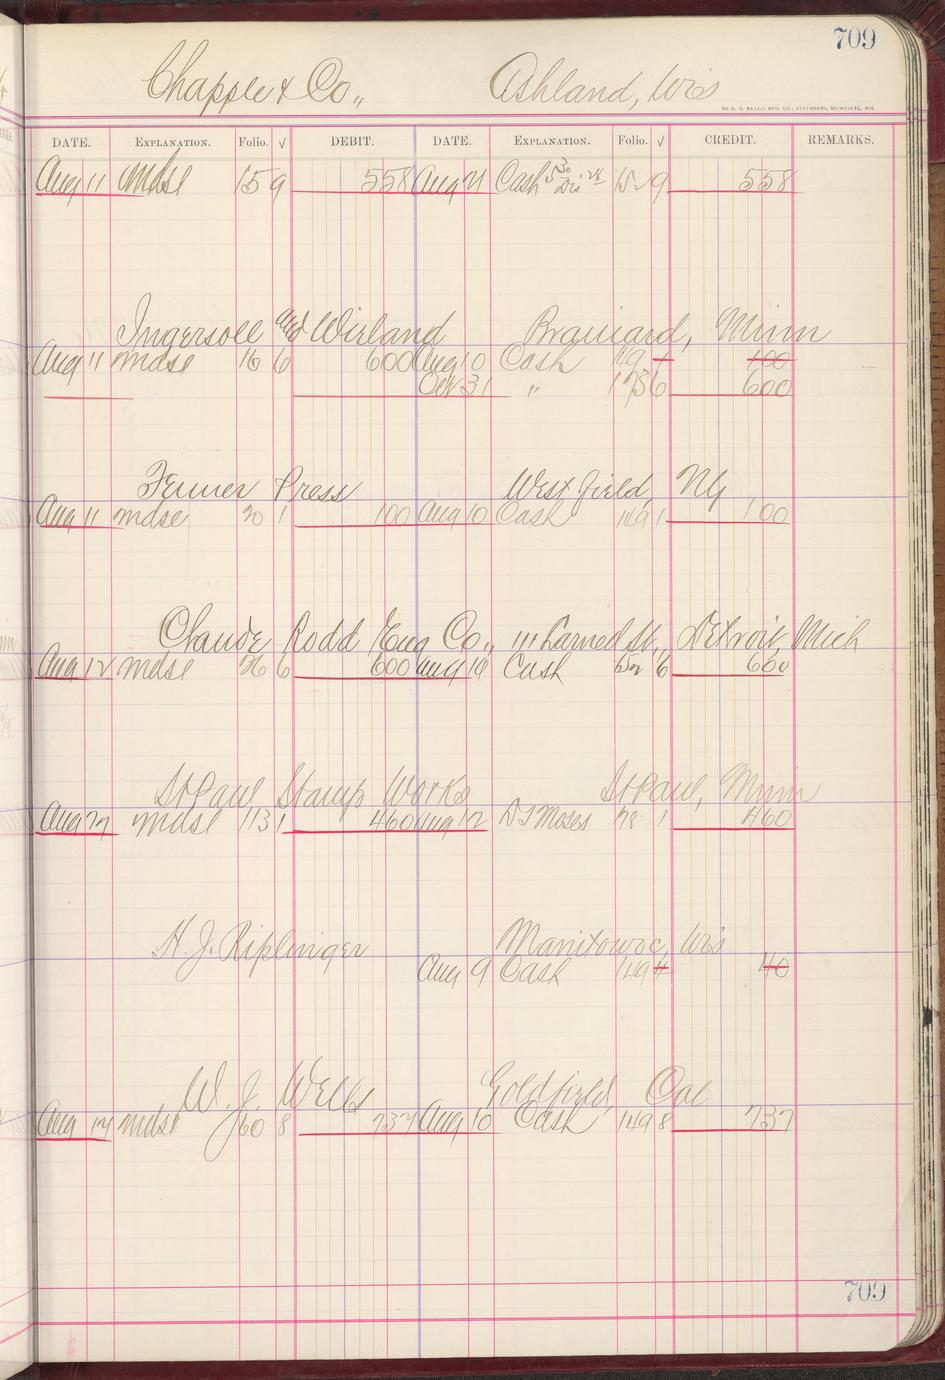 709
Chapple & Co., Ashland, Wis
DATE. EXPLANATION. Folio. √ DEBIT. DATE. EXPLANATION. Folio. √ CREDIT. REMARKS.
Aug 11 Mdse 15 9 558 Aug 21 Cash 530 Dis 28 152 9 558
Ingersoll and Wieland Brainard, Minn
Aug 11 mdse 16 6 600 Aug 10 Cash 149 1 100
Oct 31 " 173 6 600
Fenner Press Westfield, NY
Aug 11 mdse 20 1 100 Aug 10 Cash 149 1 100
Claude Rodd Eng Co., 111 Larned St., Detroit, Mich
Aug 12 mdse 26 6 600 Aug 19 Cash 152 6 600
St Paul Stamp Works St Paul, Minn
Aug 27 mdse 113 1 460 Aug 12 D J Moses 78 1 460
H. J. Riplinger Manitowoc, Wis
Aug 9 Cash 149 4 40
W. J. Wells Goldfield, Cal
Aug 17 mdse 60 8 737 Aug 10 Cash 149 8 737
709